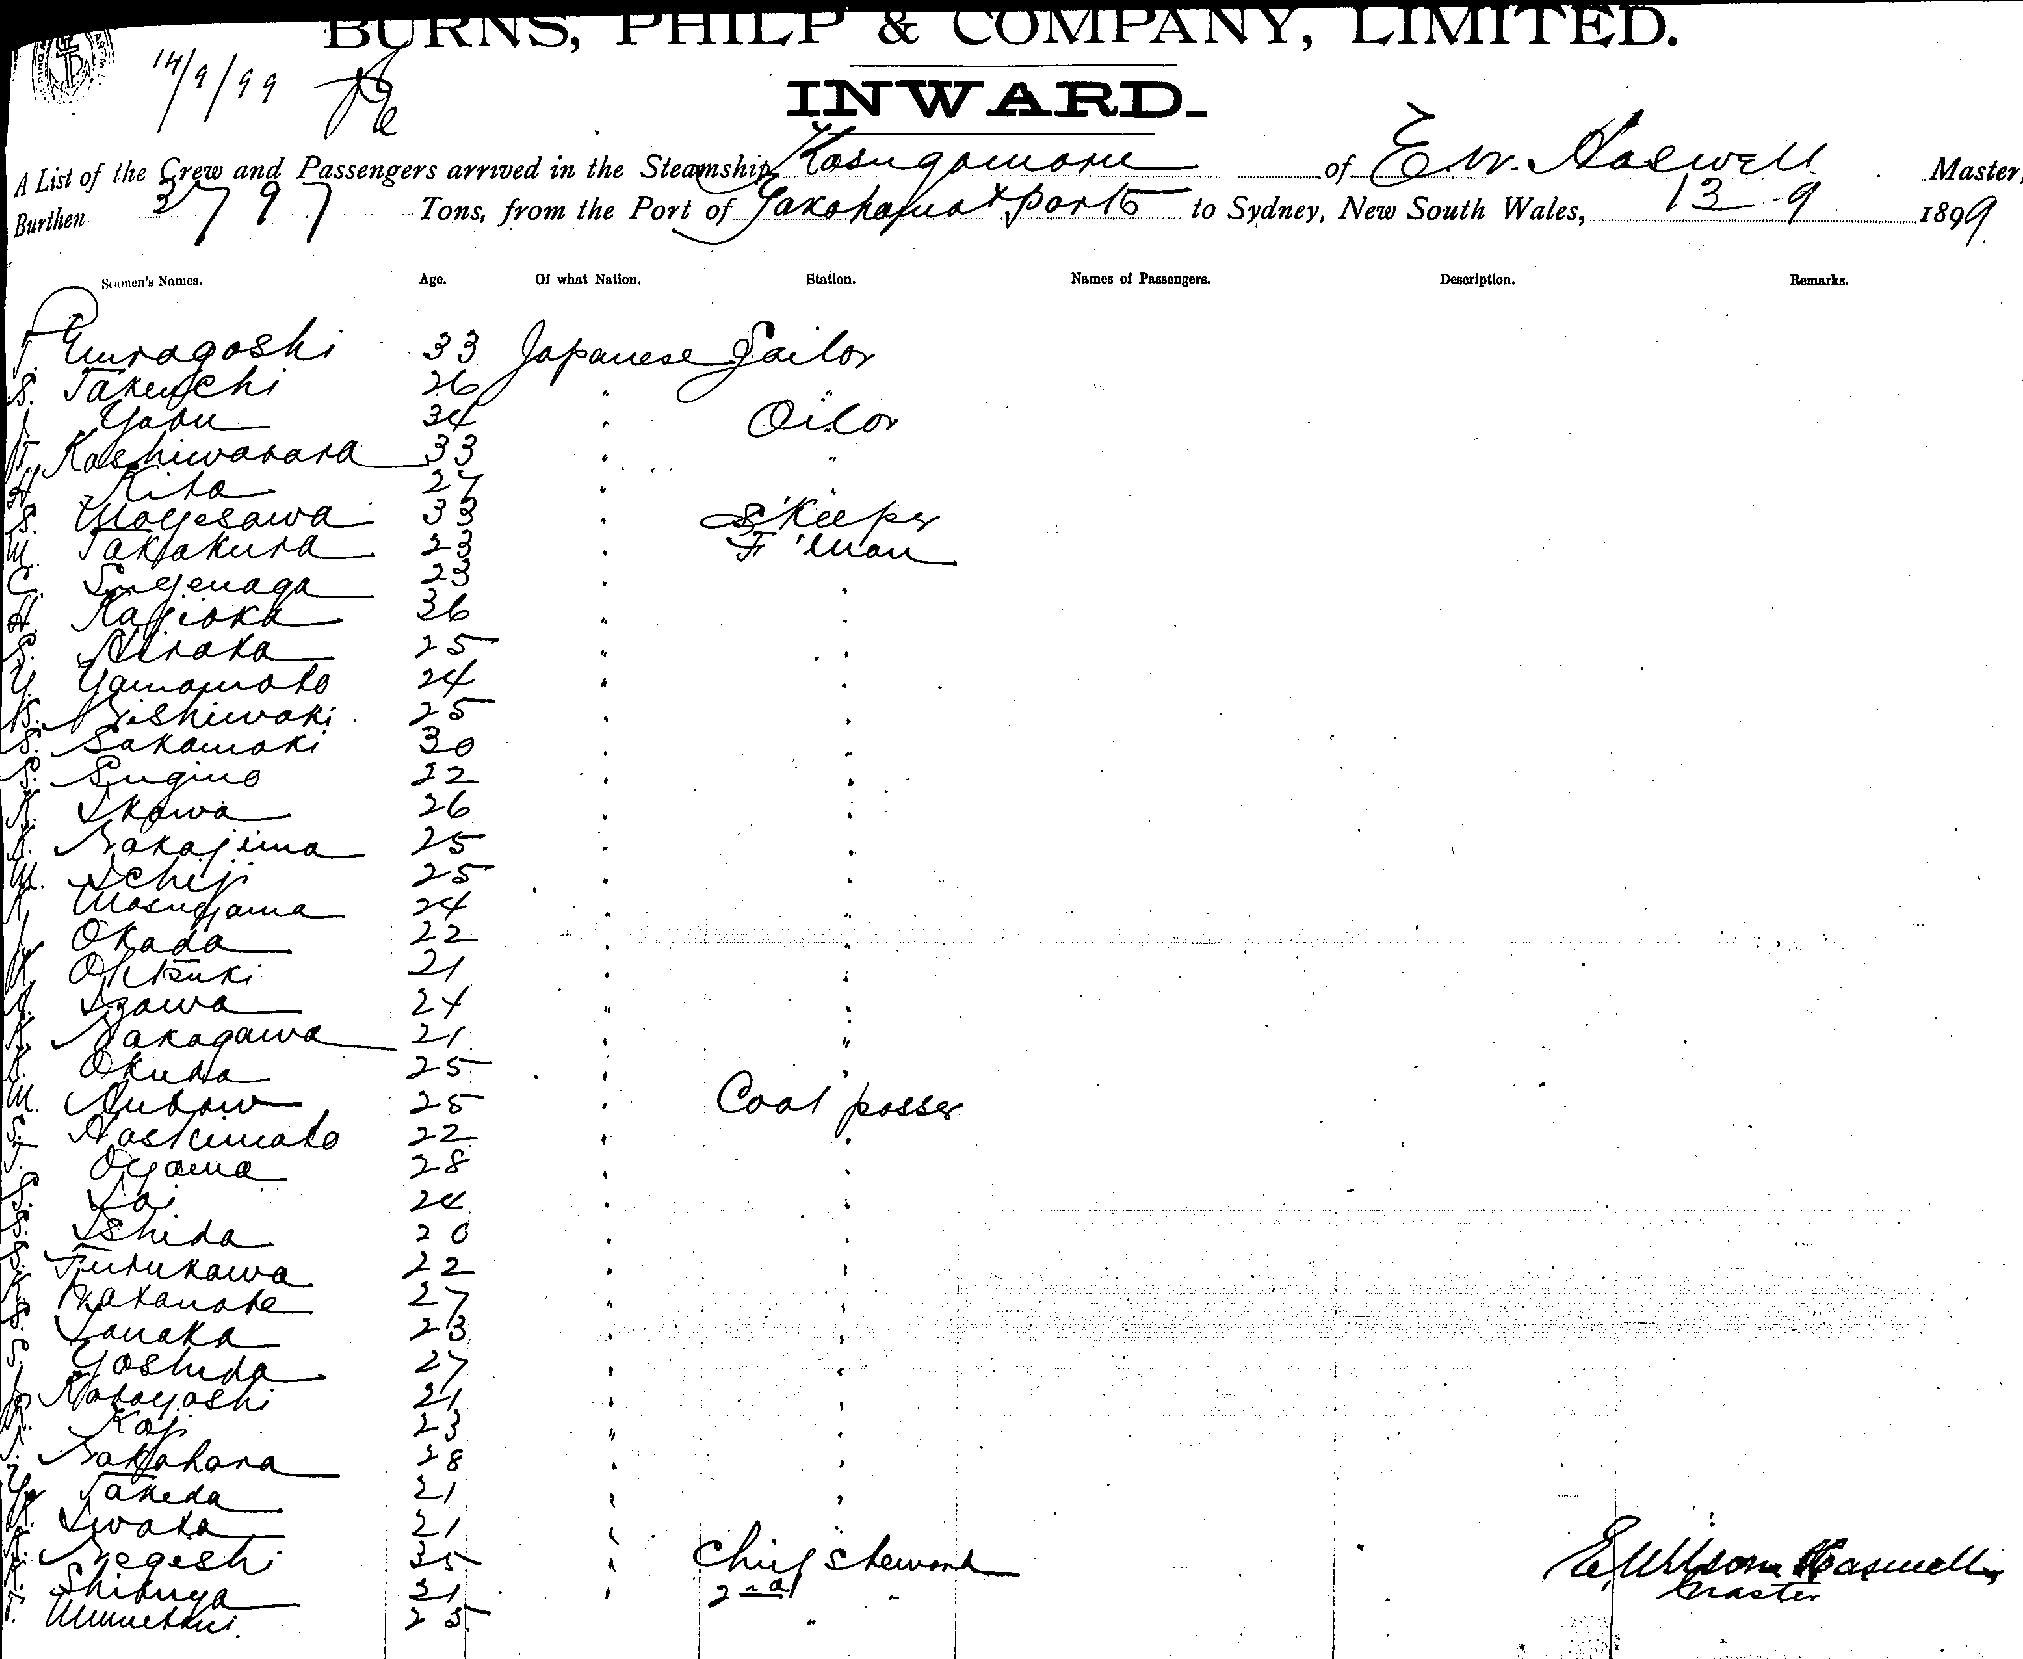 BURNS, PHILP & COMPANY, LIMITED.
14/9/99
INWARD.
A List of the Crew and Passengers arrived in the Steamship Kasugamaru of E. W. Haswell Master,
Burthen 3797 Tons, from the Port of Yakohama & ports to Sydney, New South Wales, 13-9 1899.
Seamen's Names. Age. Of what Nation. Station. Names of Passengers. Description. Remarks.
T. 33 Japanese Sailor
S. Takeuchi 26 " "
J. Yabu 34 " Oiler
T. Kashiwabara 33 " "
H. Kita 27 "
S. 33 " S'Keeper
M. Takakura 23 " F'man
C. Suyenaga 23 " "
H. Kajioka 36 " "
S. Hirata 25 " "
Y. Yamamoto 24 " "
K. Nishiwaki 25 " "
S. Sakamaki 30 " "
S. Sugino 22 " "
K. Ikawa 26 " "
K. Nakajima 25 " "
M. Ichiji 25 " "
K. Masuyama 24 " "
Okada 22 " "
Ohtsuki 21 " "
Izawa 24 " "
K. Nakagawa 21 " "
S. Okuda 25 " "
M. 25 " Coal passer
S. Hashimoto 22 " "
T. Oyama 28 " "
S. 24 " "
S. Ishida 20 " "
S. Furukawa 22 " "
K. Watanabe 27 " "
S. Tanaka 23 " "
S. Yoshida 27 " "
Kobayashi 21 " "
K. Kaji 23 " "
T. Nakahara 28 " "
Takeda 21 " "
Iwata 21 " "
K. Negishi 35 " Chief Steward
Shibuya 21 " 2nd "
T. 25 "
E. Wilson Haswell
Master